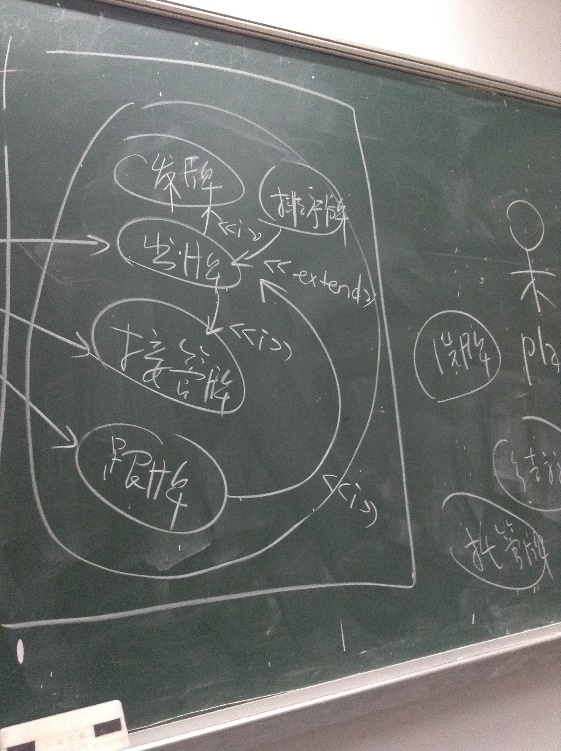 发牌
排序牌
<<i>>
出牌
<<extend>>
接管牌
<<i>>
跟牌
<<i>>
洗牌
pla
托管牌